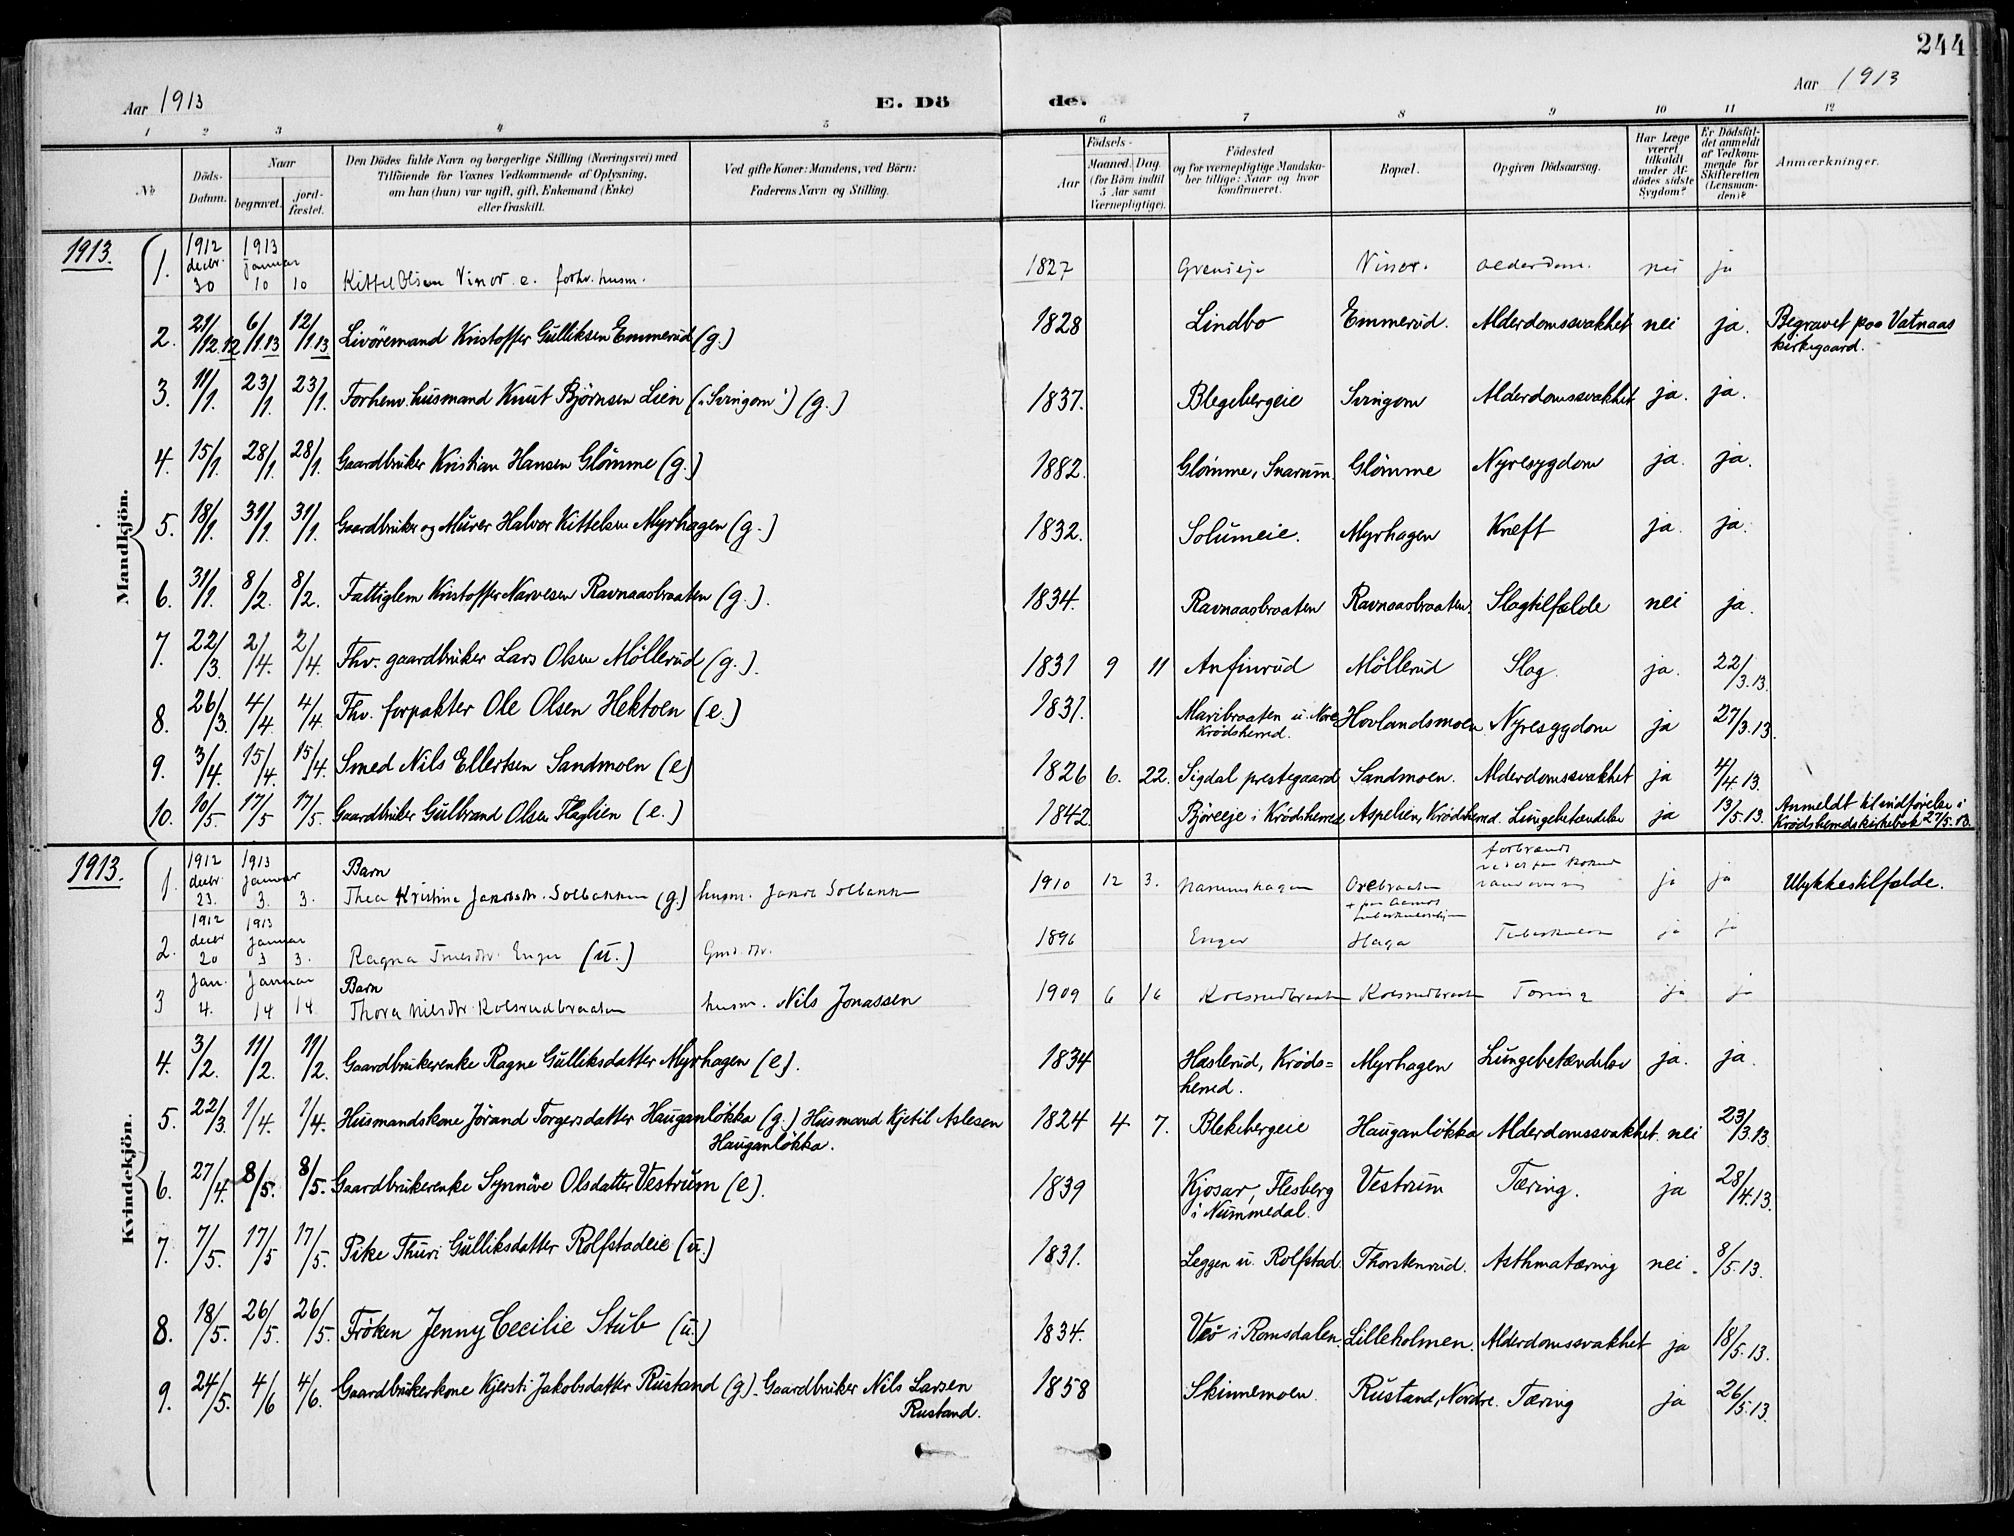 244
Aar 1913 E. Dö de. Aar 1913
1 2 3 4 5 6 7 8 9 10 11 12
No
Döds-Datum.
Naar begravet. jord-fæstet.
Den Dödes fulde Navn og borgerlige Stilling (Næringsvei) med Tilföiende for Voxnes Vedkommende af Oplysning, om han (hun) var ugift, gift, Enkemand (Enke) eller fraskilt.
Ved gifte Koner: Mandens, ved Börn: Faderens Navn og Stilling.
Födsels-
Aar Maaned. Dag. (for Börn indtil 5 Aar samt Værnepligtige).
Födested og for vernepligtige Mandskaber tillige: Naar og hvor konfirmeret.
Bopæl.
Opgiven Dödsaarsag.
Har Læge været tilkaldt under Afdödes sidste Sygdom?
Er Dödsfaldet anmeldt af Vedkommende for Skifteretten (Lensmanden)?
Anmærkninger.
Mandkjön.
1913. 1. 1912 decbr. 30 1913 januar 10 10 Kittel Olsen Vinor e. forhv. husm. 1827 Grenseje Vinor. alderdom. nei ja
2. 21/12.12 6/1.13 12/1.13 Livöremand Kristoffer Gulliksen Emmerud (g.) 1828 Lindbo Emmerud. Alderdomssvakhet nei ja. Begravet paa Vatnaas kirkegaard.
3. 11/1. 23/1. 23/1. Forhenv. husmand Knut Björnsen Lien ("Svingom") (g.) 1837. Blegebergeie Svingom Alderdomssvakhet ja. ja.
4. 15/1. 28/1. 28/1. Gaardbruker Kristian Hansen Glömme (g.) 1882. Glömme, Snarum. Glömme Nyresygdom ja. ja.
5. 18/1. 31/1. 31/1. Gaardbruker og Murer Halvor Kittelsen Myrhagen (g.) 1832. Solumeie. Myrhagen Kræft ja. ja.
6. 31/1. 8/2. 8/2. Fattiglem Kristoffer Narvesen Ravnaasbraaten (g.). 1834. Ravnaasbraaten Ravnaasbraaten Slagtilfælde nei ja.
7. 22/3. 2/4. 2/4. Fhv. gaardbruker Lars Olsen Möllerud (g.). 1831 9 11 Anfinrud Möllerud Slag. ja. 22/3.13.
8. 26/3. 4/4. 4/4. Fhv. forpakter Ole Olsen Hektoen (e.) 1831. Maribraaten u. Nore Krödsherred. Hovlandsmoen Nyresygdom ja 27/3.13.
9. 3/4. 15/4. 15/4. Smed Nils Ellertsen Sandmoen (e) 1826 6. 22. Sigdal prestegaard Sandmoen. Alderdomssvakhet ja 4/4.13.
10. 10/5. 17/5 17/5. Gaardbruker Gulbrand Olsen Flaglien (e.) 1842 Björeeje i Krödsherred Aspelien, Krödsherred. Lungebetændelse ja 13/5.13. Anmeldt til indförelse i Krödsherreds kirkebok 27/5.13.
Kvindekjön.
1913. 1. 1912 decbr. 23. 1913 januar 3. 3. Barn Thea Kristine Jakobsdtr. Solbakken (g.) husm. Solbakken 1910 12 3. forbrændt ja ja Ulykkestilfælde.
2. 1912 decbr 20 1913 januar 3 3. Ragna Enger (u.) 1896 Enger Haga Tuberkulose ja ja
3 Jan. 4. Januar 14 14 Barn Thora Nilsdtr. Kolsrudbraaten husm. Nils Jonassen 1909 6 16 Kolsrudbraaten Kolsrudbraaten Tæring ja ja
4. 3/2. 11/2. 11/2. Gaardbrukerenke Ragne Gulliksdatter Myrhagen (e). 1834 Haslerud, Kröds=herred. Myrhagen Lungebetændelse ja. ja.
5. 22/3. 1/4. 1/4. Husmandskone Jörand Torgersdatter Hauganlökka (g.) Husmand Kjetil Aslesen Hauganlökka. 1824 4 7. Blekebergeie Hauganlökka Alderdomssvakhet. nei 23/3.13.
6. 27/4. 8/5. 8/5. Gaardbrukerenke Synnöve Olsdatter Vestrum (e). 1839 Kjosar, Flesberg i Nummedal. Vestrum Tæring. ja 28/4.13.
7. 7/5. 17/5 17/5. Pike Thuri Gulliksdatter Rolfstadeie (u.) 1831. Leggen u. Rolfstad. Thorstenrud. Asthmatæring nei. 8/5.13.
8. 18/5. 26/5. 26/5. Fröken Jenny Cecilie Stub (u.) 1834. Veö i Romsdalen. Lilleholmen. Alderdomssvakhet ja 18/5.13.
9. 24/5. 4/6 4/6. Gaardbrukerkone Kjersti Jakobsdatter Rustand (g). Gaardbruker Nils Larsen Rustand. 1858 Skinnemoen. Rustand, Nordre. Tæring ja 26/5.13.